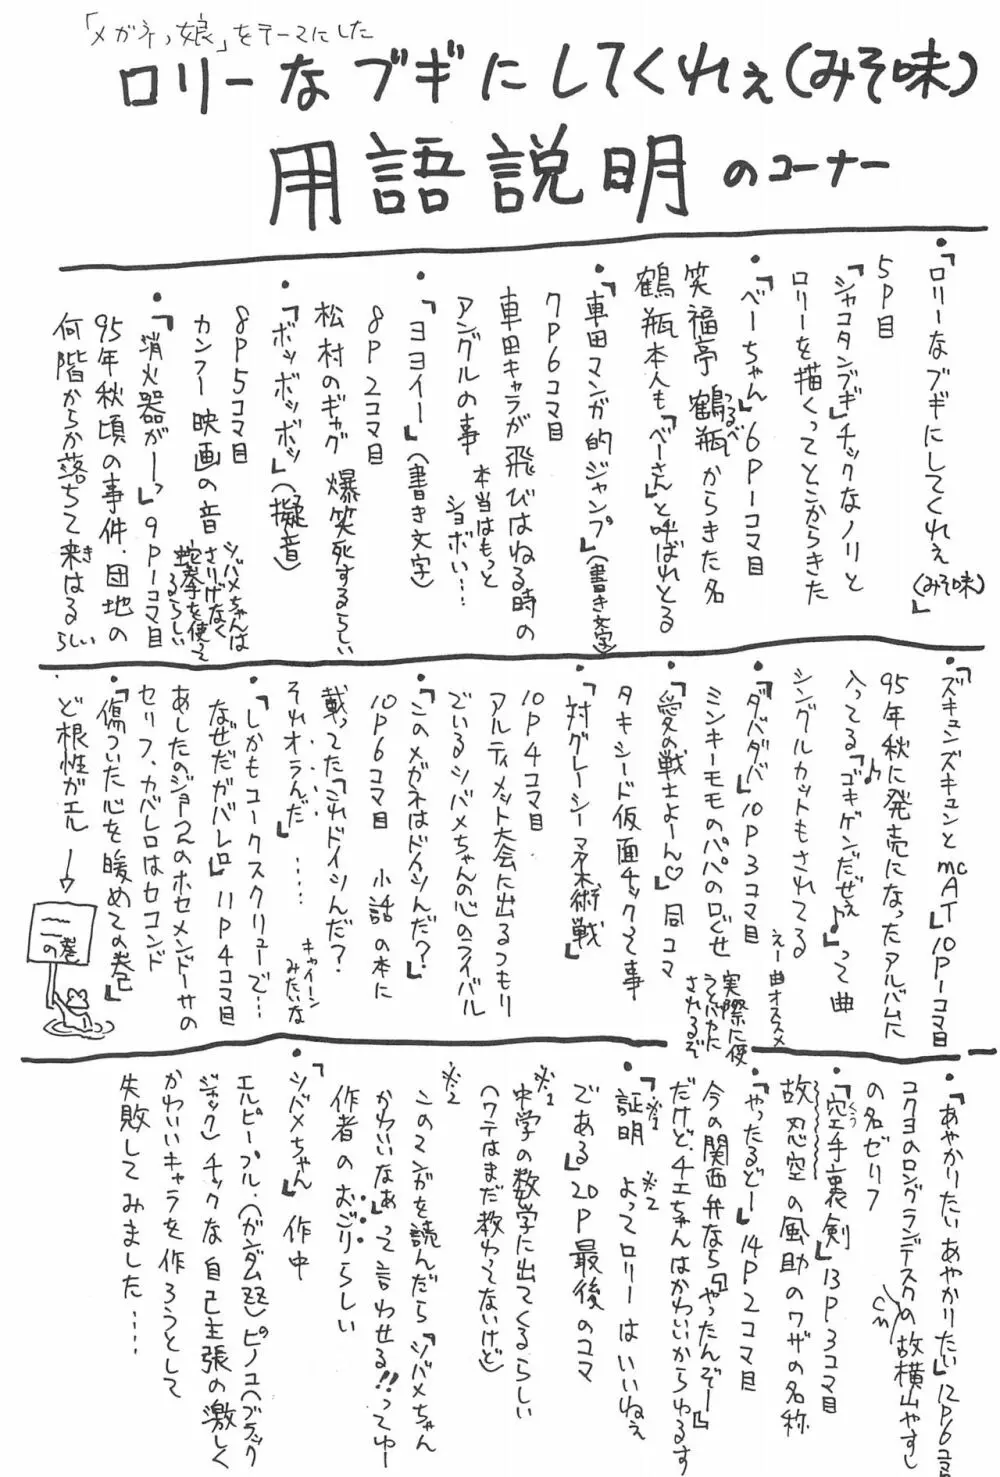 「メガネっ娘」をテーマにした
ロリーなブギにしてくれぇ(みそ味)
用語説明のコーナー
・「ロリーなブギにしてくれぇ(みそ味)」
5P目
「シャコタンブギ」チックなノリと
ロリーを描くってとこからきた
・「べーちゃん」6P1コマ目
笑福亭 鶴瓶からきた名
つるべ
鶴瓶本人も「べーさん」と呼ばれとる
・「車田マンガ的ジャンプ」(書き文字)
7P6コマ目
車田キャラが飛びはねる時の
アングルの事
本当はもっと
ショボい…
・「ヨヨイー」(書き文字)
8P2コマ目
松村のギャグ 爆笑死するらしい
・「ボッボッボッ」(擬音)
8P5コマ目
カンフー映画の音
シバメちゃんは
さりげなく
蛇拳を使って
るらしい
・「消火器がーっ」9P1コマ目
95年秋頃の事件.団地の
何階からか落ちて来はるらしい
き
・「ズキュンズキュンとmcAT」10P1コマ目
95年秋に発売になったアルバムに
入ってる「ゴキゲンだぜぇ♪」って曲
シングルカットもされてる
えー曲オススメ
・「ダバダバ」10P3コマ目
ミンキーモモのパパの口ぐせ
実際に使
うとバカに
されるぞ
・「愛の戦士よーん♡」同コマ
タキシード仮面チックって事
・「対グレーシーマネ木術戦」
10P4コマ目
アルティメット大会に出るつもり
でいるシバメちゃんの心のライバル
・「このメガネはドイツんだ?」
10P6コマ目 小話の本に
載ってた「これドイツんだ?
それオラんだ」……
キャイーン
みたいな
・「しかもコークスクリューで…
なぜだカバレロ」11P4コマ目
あしたのジョー2のホセメンドーサの
セリフ、カバレロはセコンド
・「傷ついた心を暖めての巻」
ど根性ガエル→
の巻
・「あやかりたいあやかりたい」12P6コマ目
コクヨのロングランデスクの故横山やすし
CM
の名ゼリフ
・「空手裏剣」13P3コマ目
くう
故 忍空の風助のワザの名称
・「やったるどー」14P2コマ目
今の関西弁なら「やったんぞー」
だけど、チエちゃんはかわいいからゆるす
・「証明 よってロリーはいいねぇ
※1
※2
である」20P最後のコマ
※1
中学の数学に出てくるらしい
(ワテはまだ教わってないけど)
※2
このマンガを読んだら「シバメちゃん
かわいいなぁ」って言わせる!!ってゆー
作者のおごりらしい
・「シバメちゃん」作中
エルピープル.(ガンダムZZ)ピノコ(ブラック
ジャック)チックな自己主張の激しく
かわいいキャラを作ろうとして
失敗してみました……